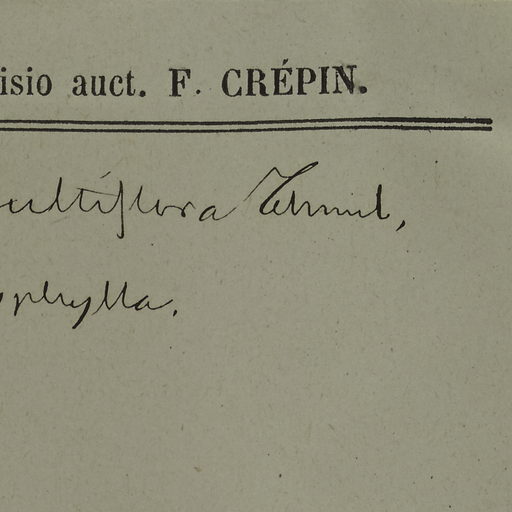 isio auct. F. CRÉPIN.
ultiflora Thunb,
ophylla.